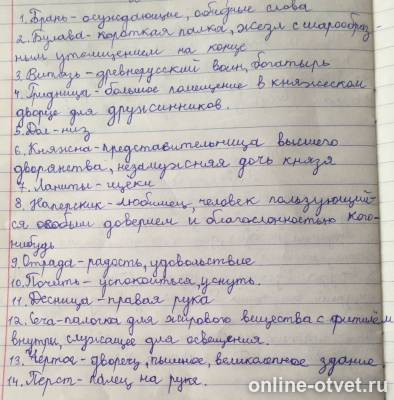 1. Брань - осуждающие, обидные слова
2. Булава - короткая палка, жезл с шарообраз-
ным утолщением на конце
3. Витязь - древнерусский воин, богатырь
4. Гридница - большое помещение в княжеском
дворце для дружинников.
5. Дол - низ
6. Княжна - представительница высшего
дворянства, незамужняя дочь князя
7. Ланиты - щёки
8. Наперсник - любимец, человек пользующий-
ся особым доверием и благослонностью кого-
нибудь
9. Отрада - радость, удовольствие
10. Почить - успокоиться, уснуть.
11. Десница - правая рука
12. - палочка для жирового вещества с фитилём
внутри, служащее для освещения.
13. Чертог - дворец, пышное, великолепное здание.
14. Перст - палец на руке.
online-otvet.ru